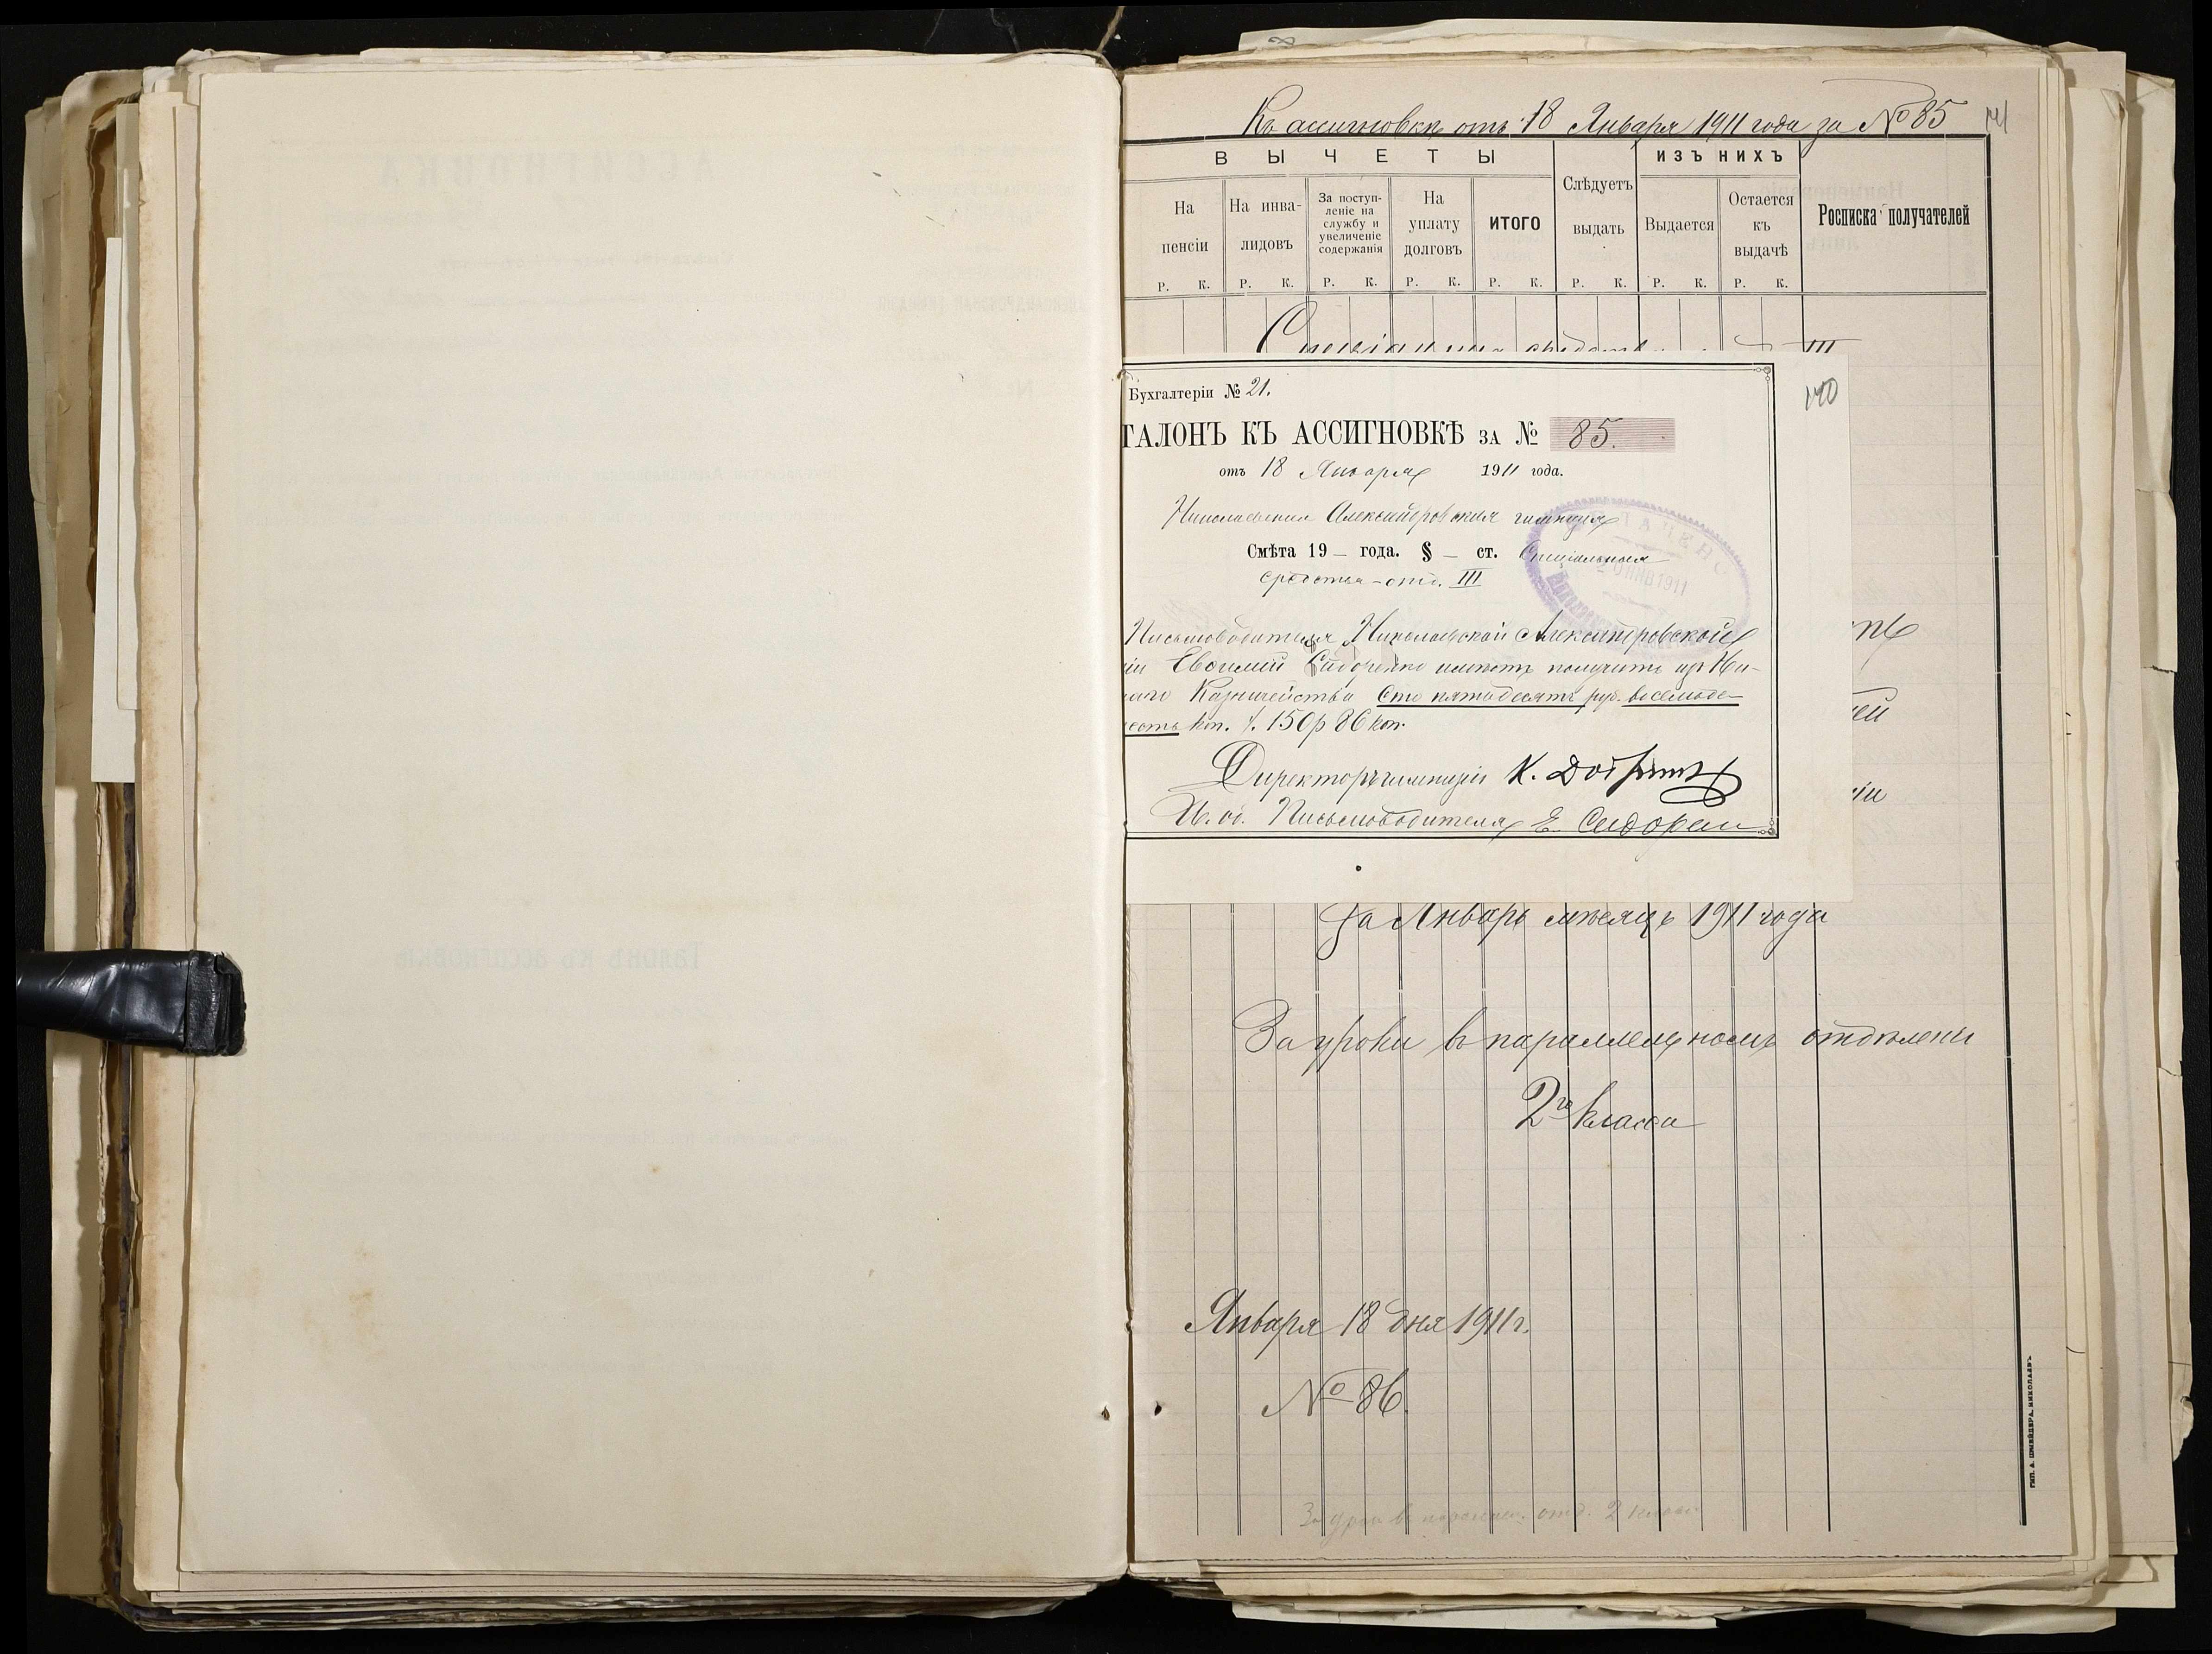 Къ ассигновкѣ отъ 18 Января 1911 года за № 85
141
ВЫЧЕТЫ
ИЗЪ НИХЪ
На пенсіи
На инва-лидовъ
За поступ-леніе на службу и увеличеніе содержанія
На уплату долговъ
ИТОГО
Слѣдуетъ выдать
Выдается
Остается къ выдачѣ
Росписка получателей
Р. К. Р. К. Р. К. Р. К. Р. К. Р. К. Р. К. Р. К.
140
Бухгалтеріи № 21.
ТАЛОНЪ КЪ АССИГНОВКѢ ЗА № 85.
отъ 18 Января 1911 года.
Николаевская Александровская гимназія
Смѣта 19 — года. § — ст. Спеціальныя
средства - отд. III
Письмоводитель Николаевской Александровской
іи Евѳимій Сидоренко имѣетъ получить изъ Ни-
аго Казначейства Сто пятьдесятъ руб. восемьде-
есть коп. 150 р 86 коп.
Директоръ гимназіи К.
И. об. Письмоводителя Е. Сидорен
За Январь мѣсяцъ 1911 года
За уроки въ параллельномъ отдѣленіи
2го класса
Января 18 дня 1911 г.
№ 86.
За уроки въ параллел. отд. 2 класса
ТИП. А. ШНЕЙДЕРА, НИКОЛАЕВЪ